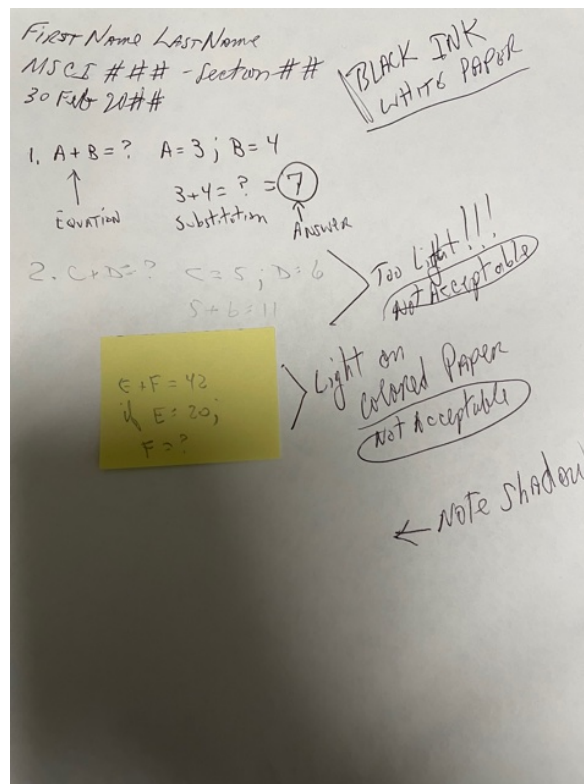 First Name Last Name
MSCI ### - Section ##
30 Feb 20##
BLACK INK
WHITE PAPER
1. A + B = ? A = 3 ; B = 4
3 + 4 = ? = 7
EQUATION
Substitution
ANSWER
2. C + D = ? C = 5 ; D = 6
5 + 6 = 11
Too Light!!!
Not Acceptable
E + F = 42
if E = 20;
F = ?
Light on
colored Paper
Not Acceptable
← Note Shadow